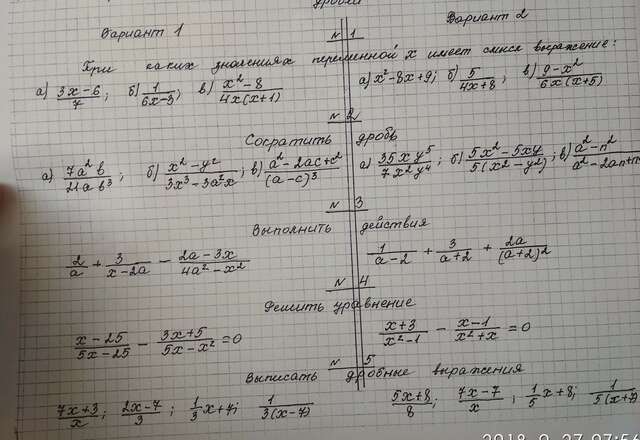 дробей
Вариант 1
Вариант 2
№ 1
При каких значениях переменной x имеет смысл выражение:
а) \frac{3x-6}{7}; б) \frac{1}{6x-3}; в) \frac{x^2-8}{4x(x+1)}
а) x^2-8x+9; б) \frac{5}{4x+8}; в) \frac{9-x^2}{6x(x+5)}
№ 2
Сократить дробь
а) \frac{7a^2b}{21ab^3}; б) \frac{x^2-y^2}{3x^3-3a^2x}; в) \frac{a^2-2ac+c^2}{(a-c)^3}
а) \frac{35xy^5}{7x^2y^4}; б) \frac{5x^2-5xy}{5(x^2-y^2)}; в) \frac{a^2-n^2}{a^2-2an+n}
№ 3
Выполнить действия
\frac{2}{a} + \frac{3}{x-2a} - \frac{2a-3x}{4a^2-x^2}
\frac{1}{a-2} + \frac{3}{a+2} + \frac{2a}{(a+2)^2}
№ 4
Решить уравнение
\frac{x-25}{5x-25} - \frac{3x+5}{5x-x^2} = 0
\frac{x+3}{x^2-1} - \frac{x-1}{x^2+x} = 0
№ 5
Выписать дробные выражения
\frac{7x+3}{x}; \frac{2x-7}{3}; \frac{1}{3}x+7; \frac{1}{3(x-7)}
\frac{5x+8}{8}; \frac{7x-7}{x}; \frac{1}{5}x+8; \frac{1}{5(x+7)}